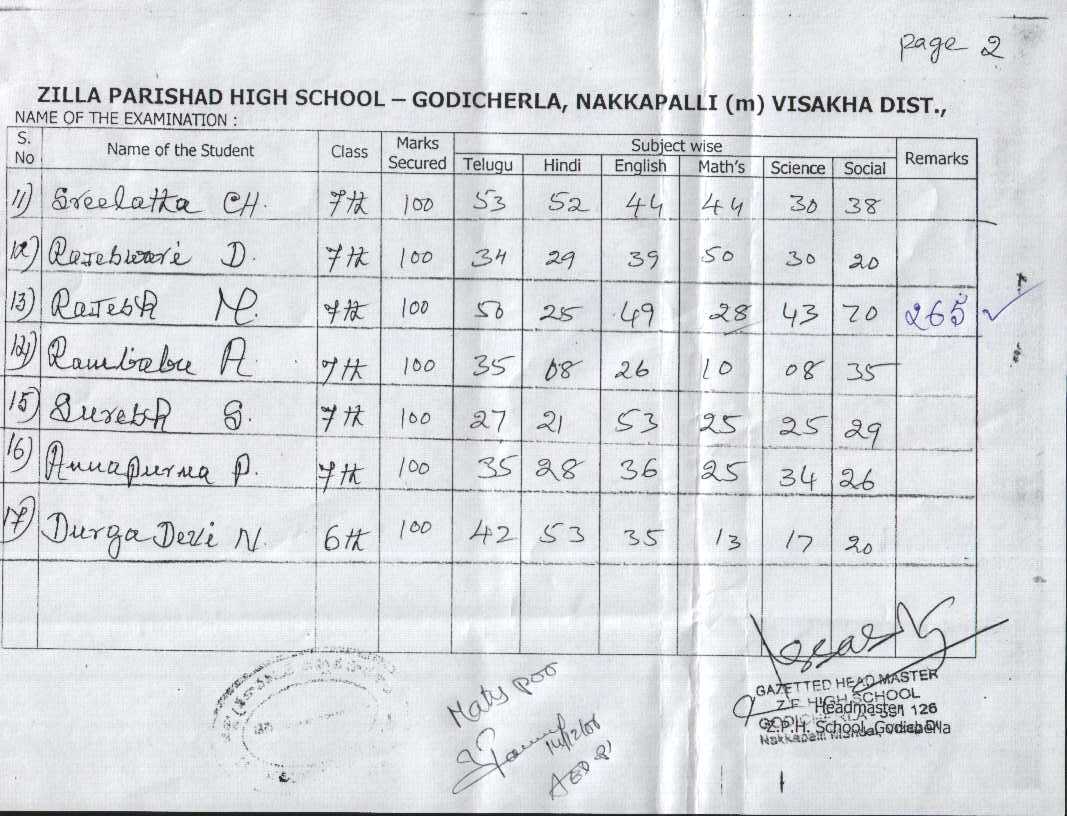 page 2
ZILLA PARISHAD HIGH SCHOOL – GODICHERLA, NAKKAPALLI (m) VISAKHA DIST.,
NAME OF THE EXAMINATION :
S. No Name of the Student Class Marks Secured Subject wise Remarks
Telugu Hindi English Math's Science Social
11) Sreelatha CH. 7th 100 53 52 44 44 30 38
12) Rajeswari D. 7th 100 34 29 39 50 30 20
13) Rajesh M. 7th 100 50 25 49 28 43 70 265 ✓
14) Rambabu A. 7th 100 35 08 26 10 08 35
15) Suresh S. 7th 100 27 21 53 25 25 29
16) Annapurna P. 7th 100 35 28 36 25 34 26
17) Durga Devi N. 6th 100 42 53 35 13 17 20
GAZETTED HEAD MASTER
Z.P. HIGH SCHOOL
Headmaster
Z.P.H. School, Godicherla
14/12/08